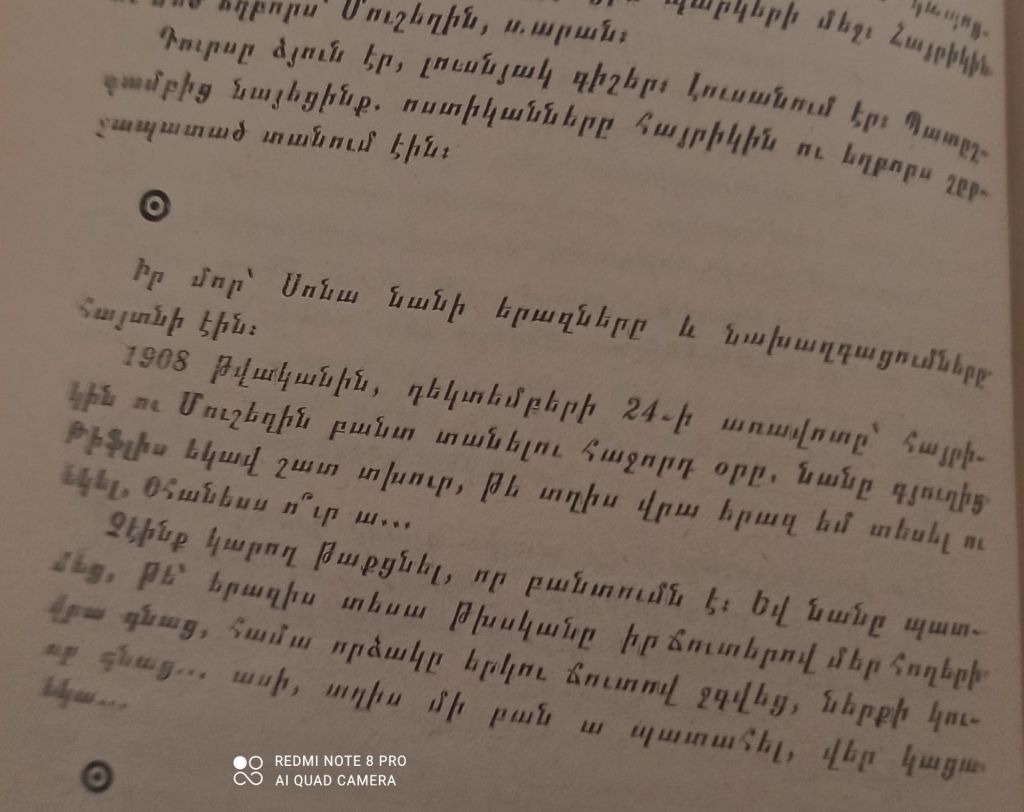 պարկերի մեջ։ Հայրիկին
եղբորս՝ Մուշեղին, տարան։
Դուրսը ձյուն էր, լուսնյակ գիշեր։ Լուսանում էր։ Պատըշ-
գամբից նայեցինք. ոստիկանները Հայրիկին ու եղբորս շըր-
ջապատած տանում էին։
Իր մոր՝ Սոնա նանի երազները և նախազգացումները
հայտնի էին։
1908 թվականին, դեկտեմբերի 24-ի առավոտը՝ Հայրի-
կին ու Մուշեղին բանտ տանելու հաջորդ օրը, նանը գյուղից
Թիֆլիս եկավ շատ տխուր, թե տղիս վրա երազ եմ տեսել ու
եկել, Օհանեսս ո՞ւր ա...
Չէինք կարող թաքցնել, որ բանտումն է։ Եվ նանը պատ-
մեց, թե՝ երազիս տեսա թխսկանը իր ճուտերով մեր հողերի
վրա գնաց, համա որձակը երկու ճուտով ջգվեց, ներքի կու-
ռը գնաց... ասի, տղիս մի բան ա պատահել, վեր կացա
եկա...
REDMI NOTE 8 PRO
AI QUAD CAMERA